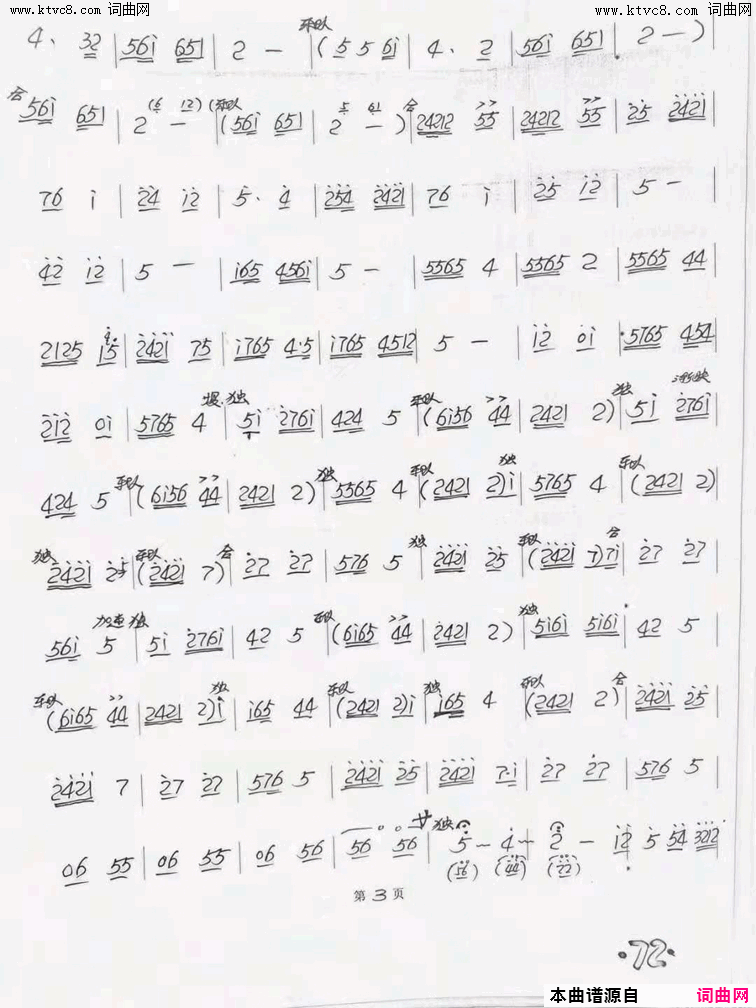 www.ktvc8.com 词曲网 www.ktvc8.com 词曲网
乐队
4. 32 | 561̇ 651 | 2 - | (5 5 61̇ | 4. 2 | 561̇ 651 | 2 - )
合 561̇ 651 | 2 - (6 12) | (乐队 561̇ 651 | 2 - ) | 合 24212 55 | 24212 55 | 2̇5 2̇4̇2̇1̇
76 1̇ | 2̇4̇ 1̇2̇ | 5̇. 4̇ | 2̇5̇4̇ 2̇4̇2̇1̇ | 76 1̇ | 2̇5 1̇2̇ | 5 -
4̇2̇ 1̇2̇ | 5 - | 1̇65 4561̇ | 5 - | 5565 4 | 5565 2 | 5565 44
2125 15 | 2̇4̇2̇1̇ 75 | 1̇765 4·5 | 1̇765 4512 | 5 - | 1̇2̇ 01̇ | 5765 454
慢 独 乐队 独 渐快
2̇1̇2̇ 01̇ | 5765 4 | 51̇ 2̇761̇ | 424 5 | (61̇56 44 | 2421 2) | 51̇ 2̇761̇
乐队 独 乐队 独 乐队
424 5 | (61̇56 44 | 2421 2) | 5565 4 | (2421 2)1̇ | 5765 4 | (2421 2)
独 乐队 合 独 乐队 合
2̇4̇2̇1̇ 2̇5 | (2̇4̇2̇1̇ 7) | 2̇7 2̇7 | 576 5 | 2̇4̇2̇1̇ 2̇5 | (2̇4̇2̇1̇ 7)71̇ | 2̇7 2̇7
加速 独 乐队 独
561̇ 5 | 51̇ 2̇761̇ | 42 5 | (61̇65 44 | 2421 2) | 5161̇ 5161̇ | 42 5
乐队 独 乐队 独 乐队 合
(61̇65 44 | 2421 2)1̇ | 1̇65 44 | (2421 2)1̇ | 1̇65 4 | (2421 2) | 2̇4̇2̇1̇ 2̇5
2̇4̇2̇1̇ 7 | 2̇7 2̇7 | 576 5 | 2̇4̇2̇1̇ 2̇5 | 2̇4̇2̇1̇ 7·1̇ | 2̇7 2̇7 | 576 5
廾 独
06 55 | 06 55 | 06 56 | 56 56 | 5̇ - 4̇ - | 2̇ - 1̇2̇ 5̇ 5̇4̇ 3̇2̇1̇2̇
(56) (44) (22)
第 3 页
·72·
本曲谱源自 词曲网